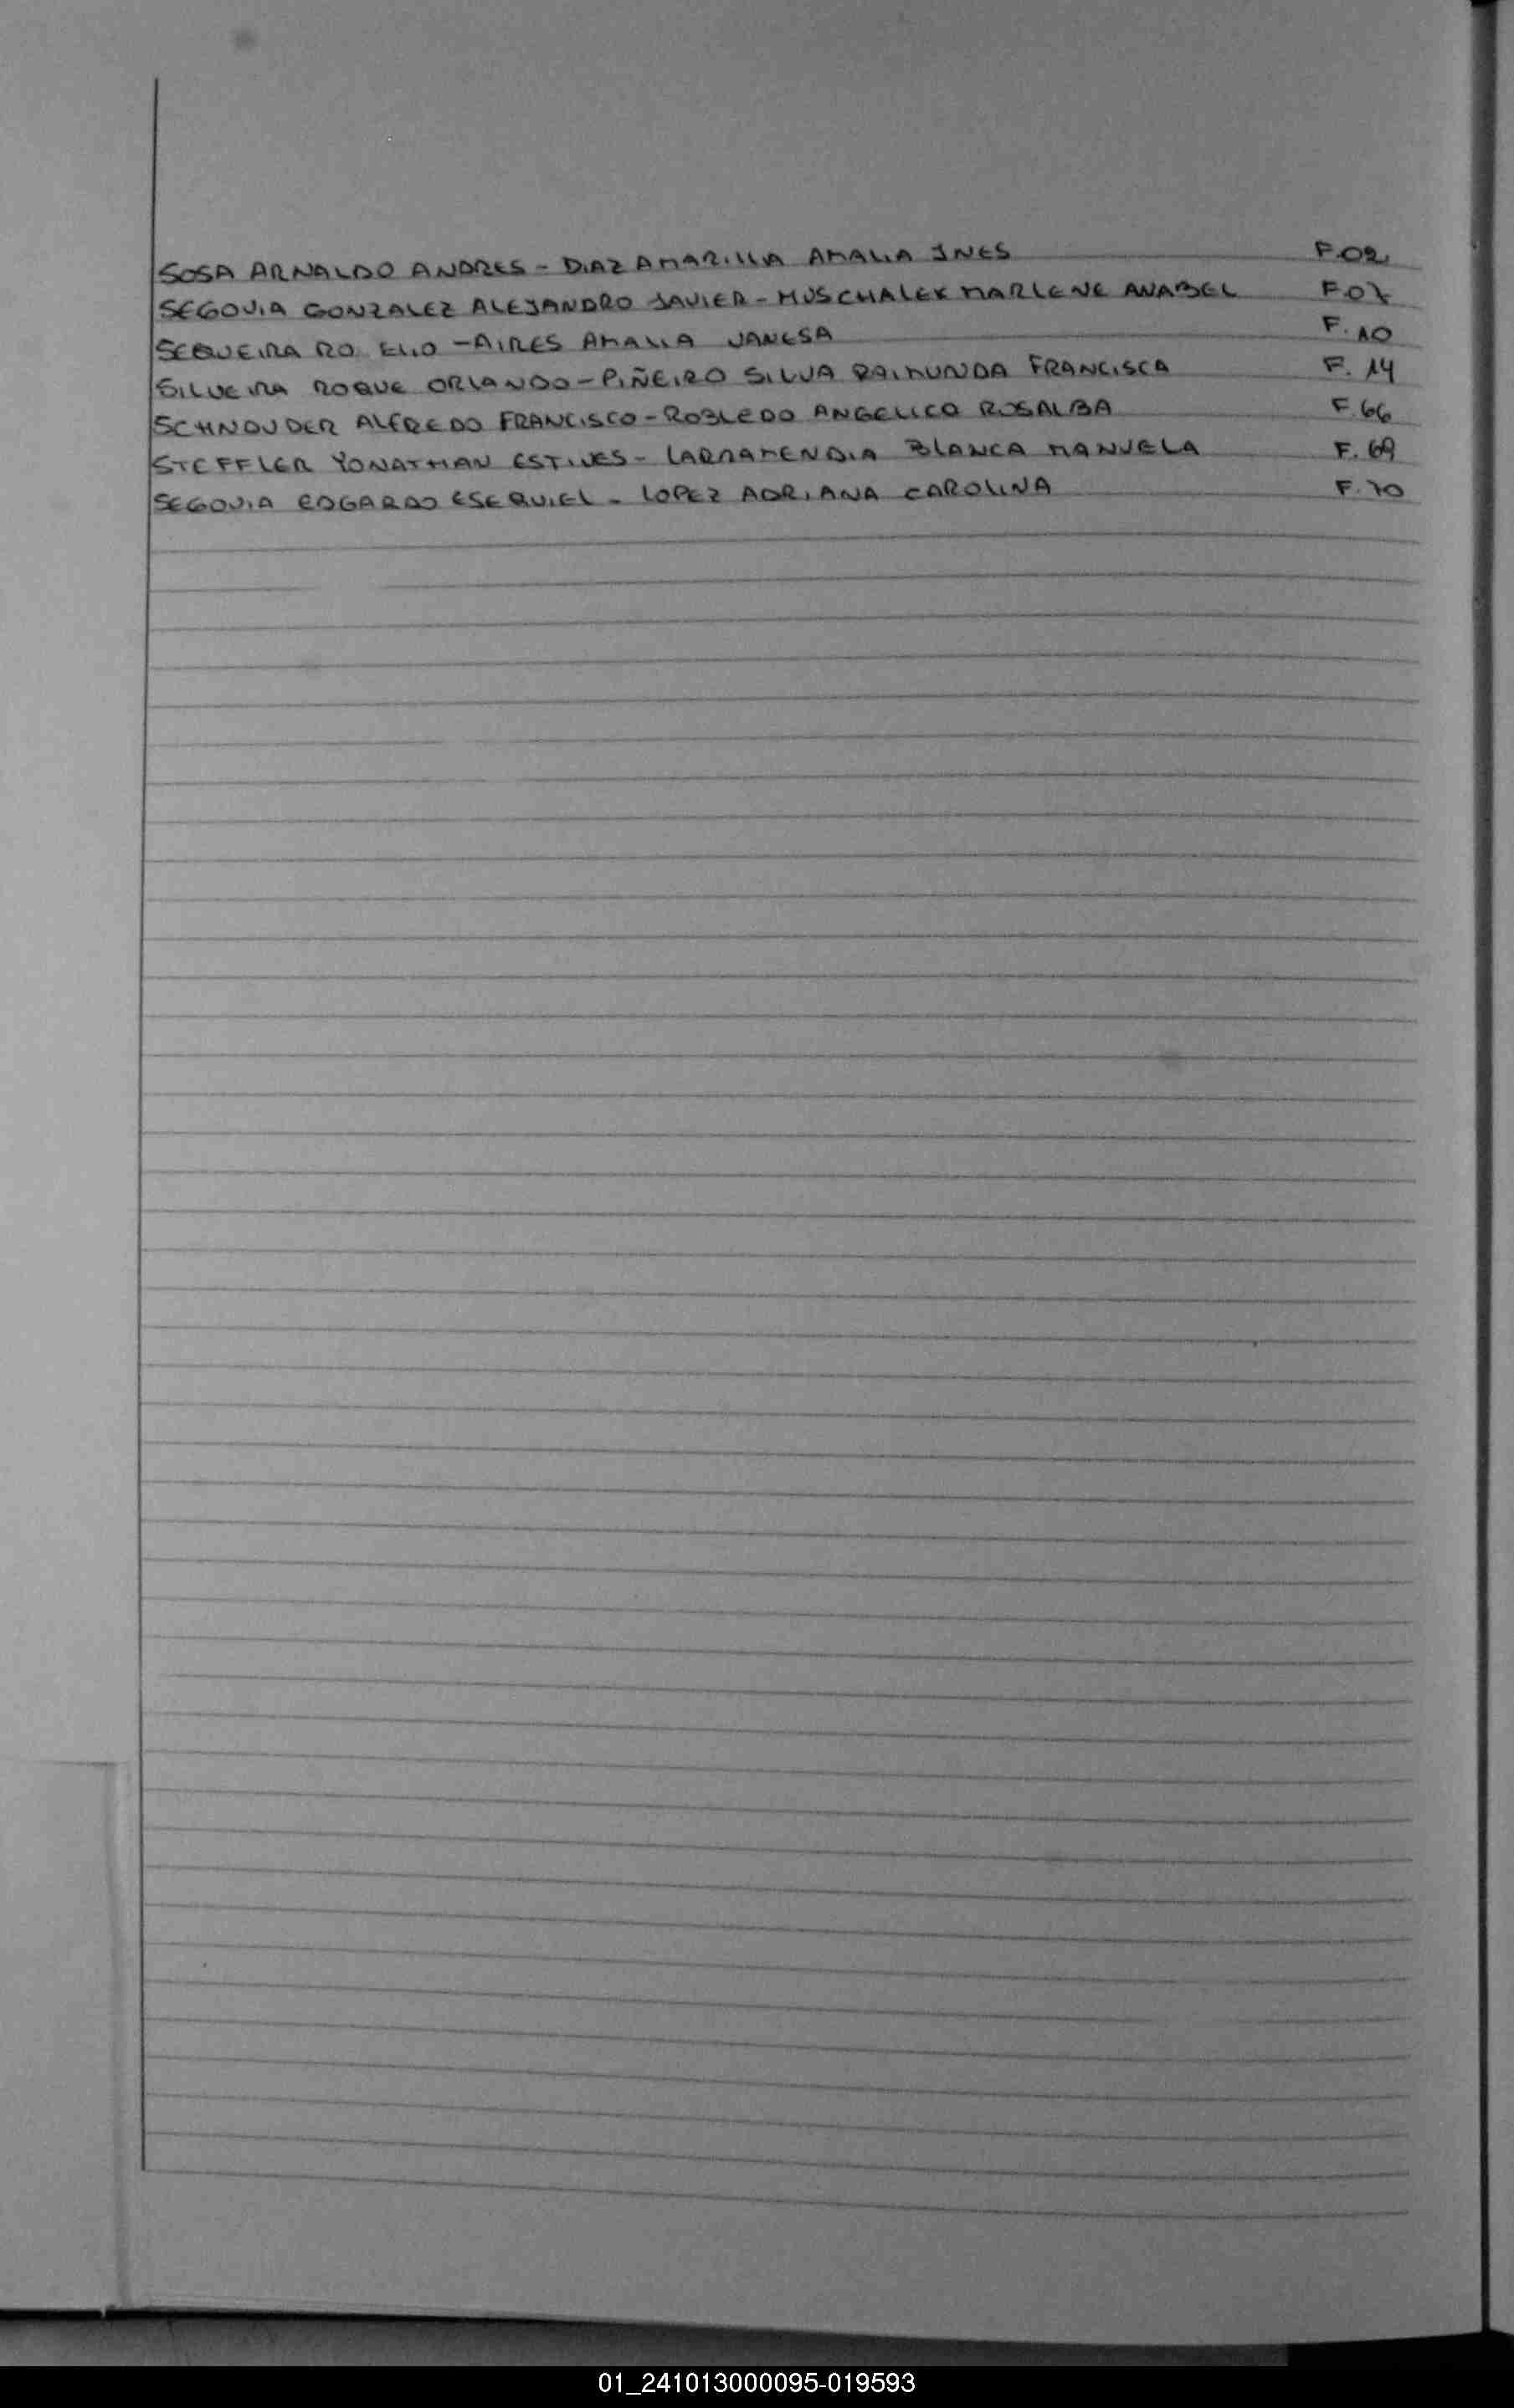 SOSA ARNALDO ANDRES - DIAZ AMARILLA AMALIA INES F.02
SEGOVIA GONZALEZ ALEJANDRO JAVIER - MUSCHALEK MARLENE ANABEL F.07
SEQUEIRA RO ELIO - AIRES AMALIA VANESA F.10
SILVEIRA ROQUE ORLANDO - PIÑEIRO SILVA RAIMUNDA FRANCISCA F.14
SCHNOUDER ALFREDO FRANCISCO - ROBLEDO ANGELICO ROSALBA F.66
STEFFLER YONATHAN ESTIVES - LARRAMENDIA BLANCA MANUELA F.69
SEGOVIA EDGARDO ESEQUIEL - LOPEZ ADRIANA CAROLINA F.70
01_241013000095-019593